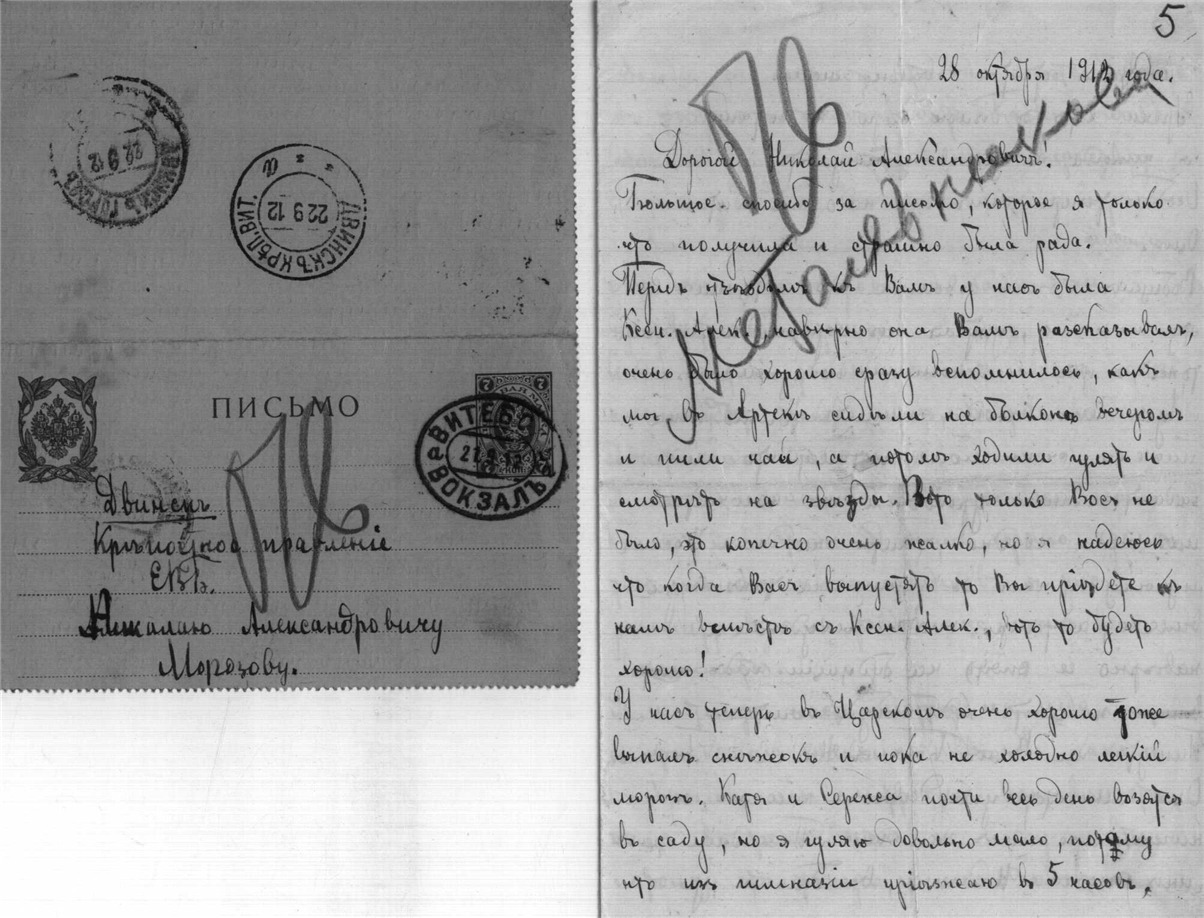 22 9 12
ДВИНСКЪ КРѢП. ВИТ.
22 9 12
ПИСЬМО
7
ВИТЕБСКЪ
ВОКЗАЛЪ
Двинскъ
Крѣпостное правленіе
ЕВБ.
Николаю Александровичу
Морозову.
5
28 октября 1912 года.
Дорогой Николай Александровичъ!
Большое спасибо за письмо, которое я только
что получила и страшно была рада.
Передъ отъѣздомъ къ Вамъ у насъ была
Ксен. Алек. навѣрно она Вамъ разсказывала,
очень было хорошо сразу вспомнилось, какъ
мы въ Артекѣ сидѣли на балконѣ вечеромъ
и пили чай, а потомъ ходили гулять и
смотрѣть на звѣзды. Вотъ только Васъ не
было, это конечно очень жалко, но я надеюсь
что когда Васъ выпустятъ то Вы пріѣдете къ
намъ вмѣстѣ съ Ксен. Алек., вотъ то будетъ
хорошо!
У насъ теперь въ Царскомъ очень хорошо тоже
выпалъ снѣжокъ и пока не холодно легкій
морозъ. Катя и Сережа почти весь день возятся
въ саду, но я гуляю довольно мало, потому
что изъ гимназіи пріѣзжаю въ 5 часовъ.